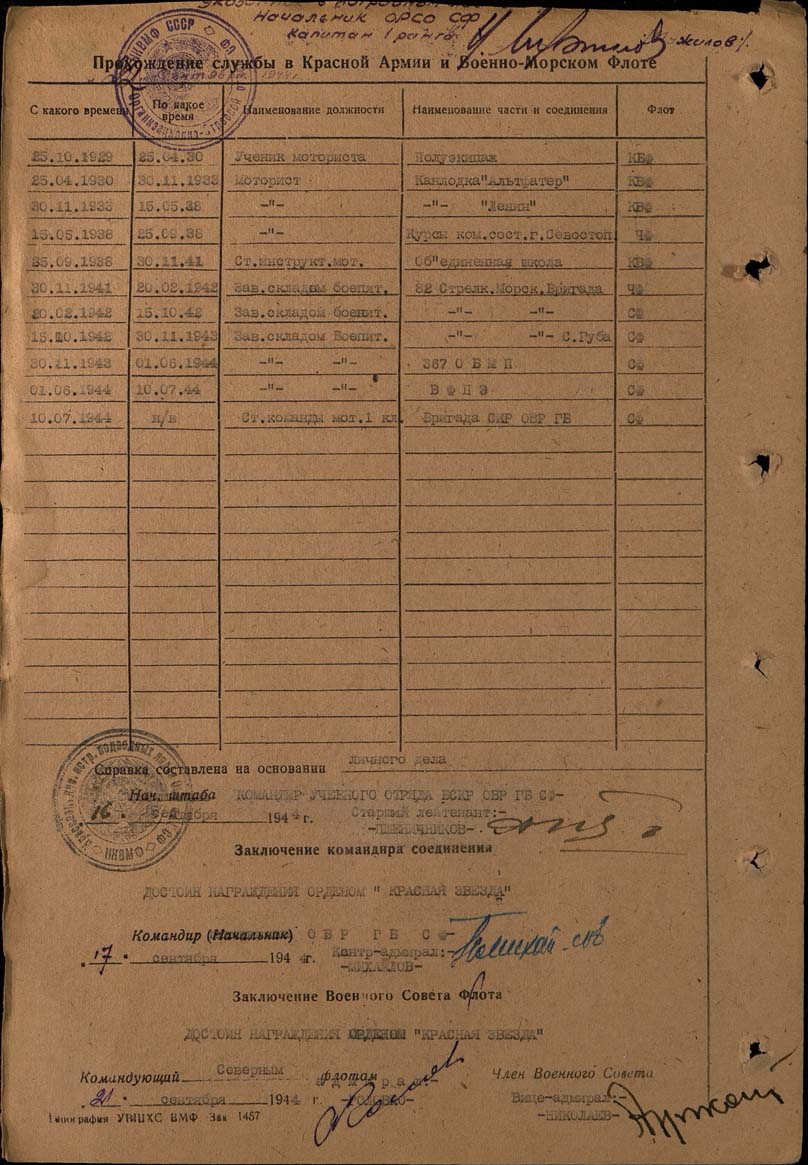 Начальник ОРСО СФ
Капитан 1 ранга
Прохождение службы в Красной Армии и Военно-Морском Флоте
С какого времени По какое время Наименование должности Наименование части и соединения Флот
25.10.1929 25.04.30 Ученик моториста Полуэкипаж КБФ
25.04.1930 30.11.1933 Моторист Канлодка"Альтфатер" КВФ
30.11.1933 15.05.38 -"- -"- "Ленин" КВФ
15.05.1938 25.09.38 -"- Курсы ком.сост.г.Севостоп. ЧФ
25.09.1938 30.11.41 Ст.инструкт.мот. Об"единенная школа КВФ
30.11.1941 20.02.1942 Зав.складом боепит. 82 Стрелк.Морск.Бригада ЧФ
20.02.1942 15.10.42 Зав.складом боепит. -"- -"- СФ
15.10.1942 30.11.1943 Зав.складом Боепит. -"- -"- С.Губа СФ
30.11.1943 01.06.1944 -"- -"- 367 О Б М П СФ
01.06.1944 10.07.44 -"- -"- В Ф П Э СФ
10.07.1944 н/в Ст.команды мот.1 кл. Бригада СКР ОВР ГБ СФ
Справка составлена на основании личного дела
Нач. штаба КОМАНДИР УЧЕБНОГО ОТРЯДА БСКР ОВР ГБ СФ-
16 сентября 1944 г. Старший лейтенант:-
-ПШЕНИЧНИКОВ-
Заключение командира соединения
ДОСТОИН НАГРАЖДЕНИЯ ОРДЕНОМ " КРАСНАЯ ЗВЕЗДА"
Командир (Начальник) О В Р Г Б С Ф-
"17" сентября 1944 г. Контр-адмирал:-
-МИХАЙЛОВ-
Заключение Военного Совета Флота
ДОСТОИН НАГРАЖДЕНИЯ ОРДЕНОМ "КРАСНАЯ ЗВЕЗДА"
Командующий Северным флотом Член Военного Совета
адмирал
"21" сентября 1944 г. -ГОЛОВКО- Вице-адмирал:-
-НИКОЛАЕВ-
Типография УВШХС ВМФ Зак 1457